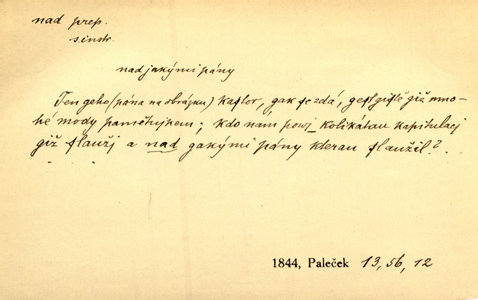 nad prep.
s instr.
nad jakými pány
Ten geho (pána na obrázku) kastor, gak se zdá, gest gistě giž mno-
hé mody pamětnjkem; kdo nám powj kolikátau kapitulacj
giž slaužj a nad gakými pány kterau slaužil?
1844, Paleček 13, 56, 12